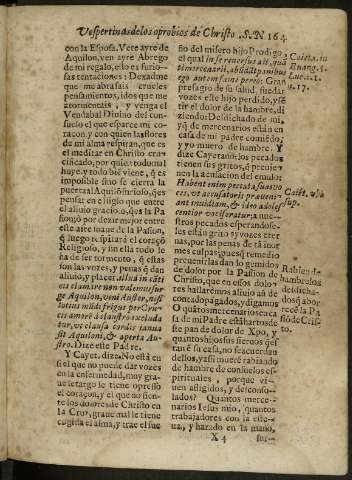 Vespertinas de los oprobios de Christo .S.N 164
con la Esposa. Vete ayre de
Aquilon, ven ayre Abrego
de mi regalo, ello es furio-
sas tentaciones: Dexadme
que me abrasais crueles
pensamientos, idos que me
atormentais, y venga el
Vendabal Divino del con-
suelo el que esparce mi co-
raçon y con quien las flores
de mi alma respiran, que es
el meditar en Christo cru-
cificado, por quien todo mal
huye, y todo bié viene, q̃ es
impossible sino se cierra la
puerta al Aquilõ furioso, q̃ es
pensar en el siglo que entre
el alivio gracioso, q̃ es la Pa
siõ q̃ por dezir mejor entre
este aire suave de la Passion,
q̃ luego respirara el coraçõ
Religioso, y sin ella todo le
ha de ser tormento, q̃ estas
son las vozes, y penas q̃ dan
alivio, y placer.
ge Aquilon, veni Auster, nisi
totius mundi frigus per Cru-
cis amorẽ à claustro recluda
tur, ve clausa cordis ianua
sit Aquiloni, & aperta Au-
stro. Dize este Padre.
Y Cayet. dize. No está en
si el que no puede dar vozes
en la enfermedad, muy gra-
ue letargo le tiene opresso
el coraçon, y el que no sien-
te los dolores de Christo en
la Cruz, graue mal le tiene
cogida el alma, y trae el suc
sio del misero hijo Prodigo
el qual in se reversus ait, quã
ti mercenarij, abũdãt panibus
ego autem fame pereo: Gran
presagio de su salud, fuedar
vozes este hijo perdido, y sẽ
tir el dolor de la hambre, di
ziendo: Desdichado de mi,
y q̃ de mercenarios estàn en
casa de mi padre comiẽdo,
y yo muero de hambre Y
dize Cayetano: los pecados
tienen sus gritos, q̃ preuie-
nen la acusacion del emulo:
Habent enim peccata suas vo
ces, vt accusatorij præueni-
ant inuidiam, & ideo adoles
centior vociferatur: a nues-
tros pecados esperandose-
les estàn grito sy vozes eter
nas, por las penas de tã inor
mes culpas: que es remedio
preuenirlas dan lo gemidos
de dolor por la Passion de
Christo, que en essos dolo-
res hallarèmos aliuio assi de
contado pagados, y digamos
O quãtos mercenarios en ca
sa de mi Padre està hartos de
este pan de dolor de Xpo, y
quantos hijos sus fuerõ de
tan è su casa, no se acuerdan
dellos, y assi muerẽ rabiando
de hambre de consuelos es-
pirituales, porque vi-
uen afligidos, y desconso-
lados? Quantos merce-
narios Iesus mio, quantos
trabajadores con la este-
ua, y harado en la mano,
X 4
Caieta. in
Euang. S.
Luc. c. 1.
n. 17.
Caiet. vbi
sup.
Rabien de
hambre los
desdicha-
dos q̃ abor
rece la Pa
siõ de Cris-
to.